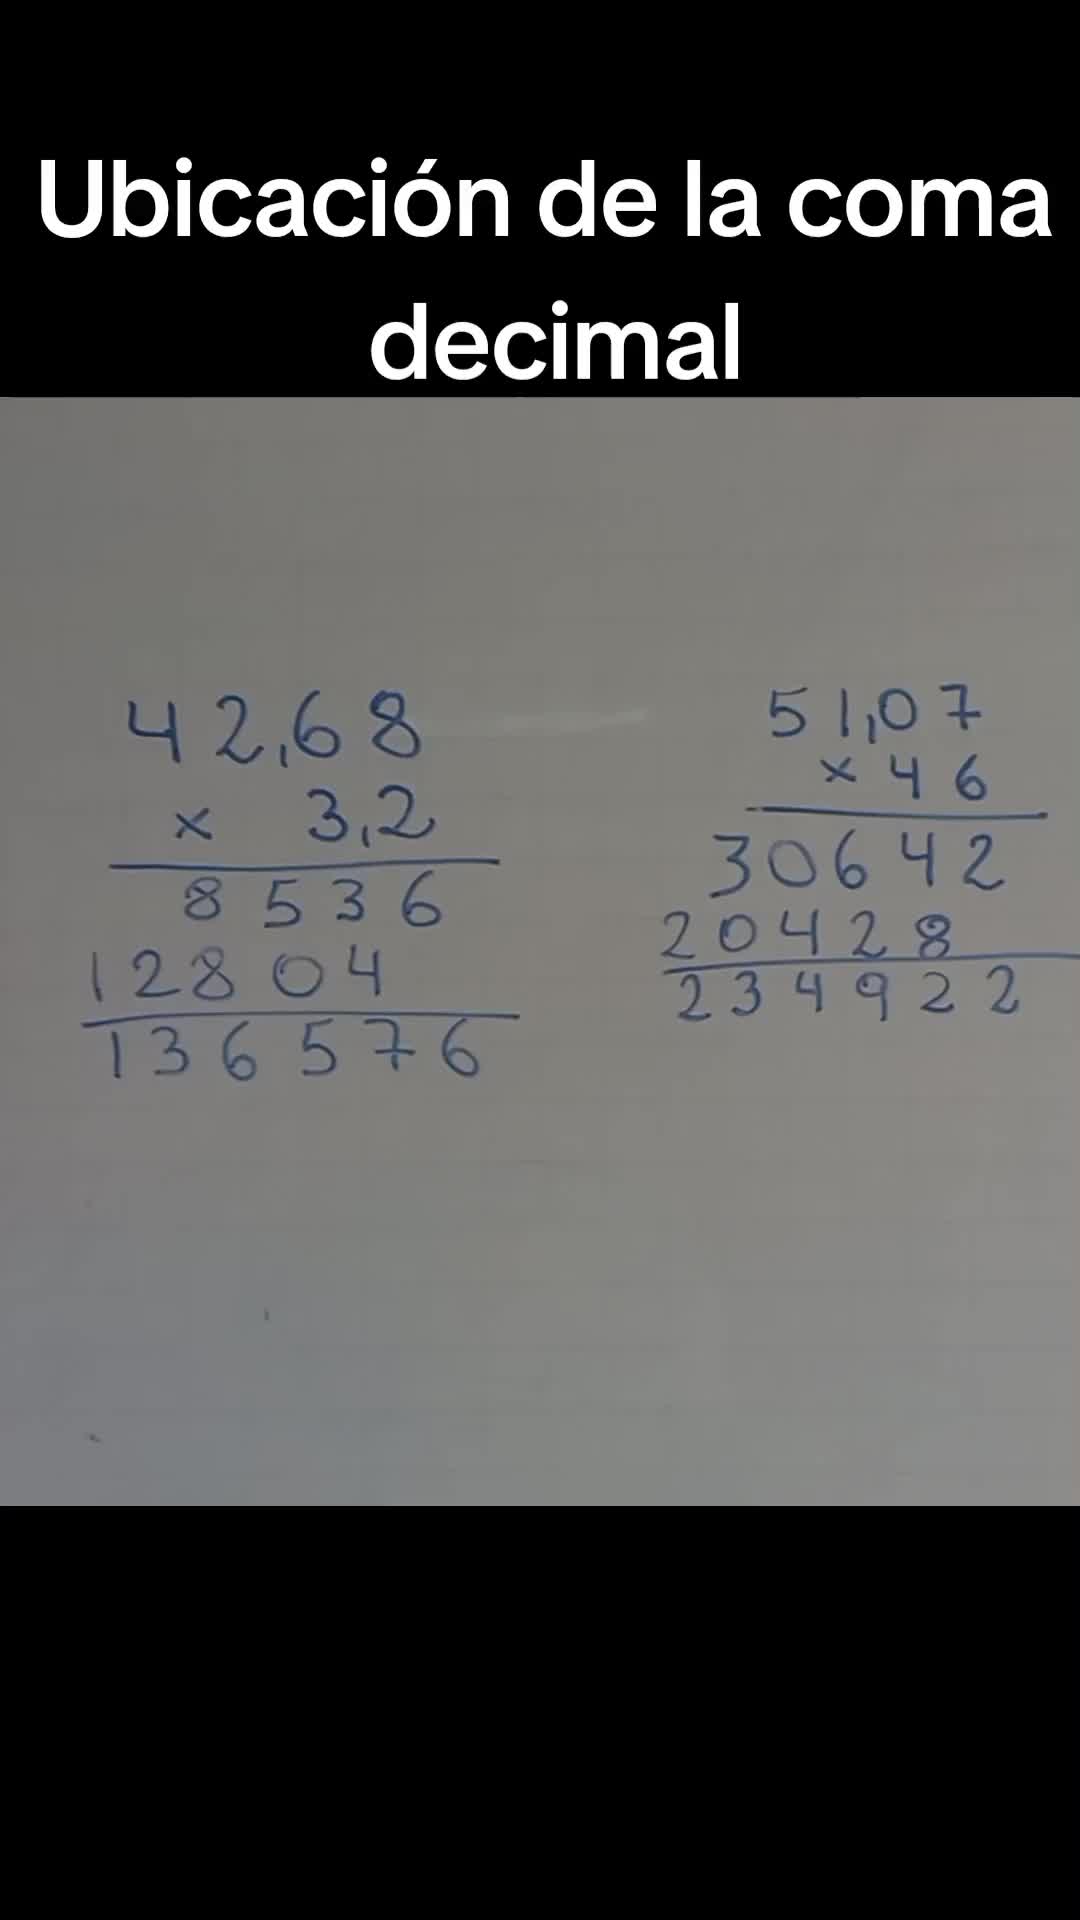 Ubicación de la coma
decimal
42,68
x 3,2
8536
12804
136576
51,07
x 46
30642
20428
234922